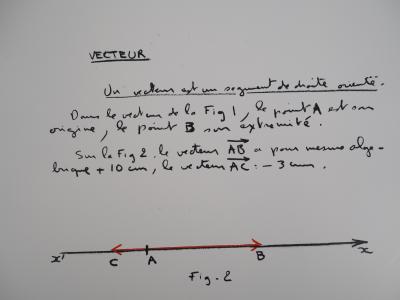 VECTEUR
Un vecteur est un segment de droite orienté.
Dans le vecteur de la Fig 1, le point A est son
origine, le point B son extremité.
Sur la Fig 2. le vecteur AB a pour mesure algé-
brique + 10 cm, le vecteur AC : - 3 cm.
x' C A B x
Fig. 2